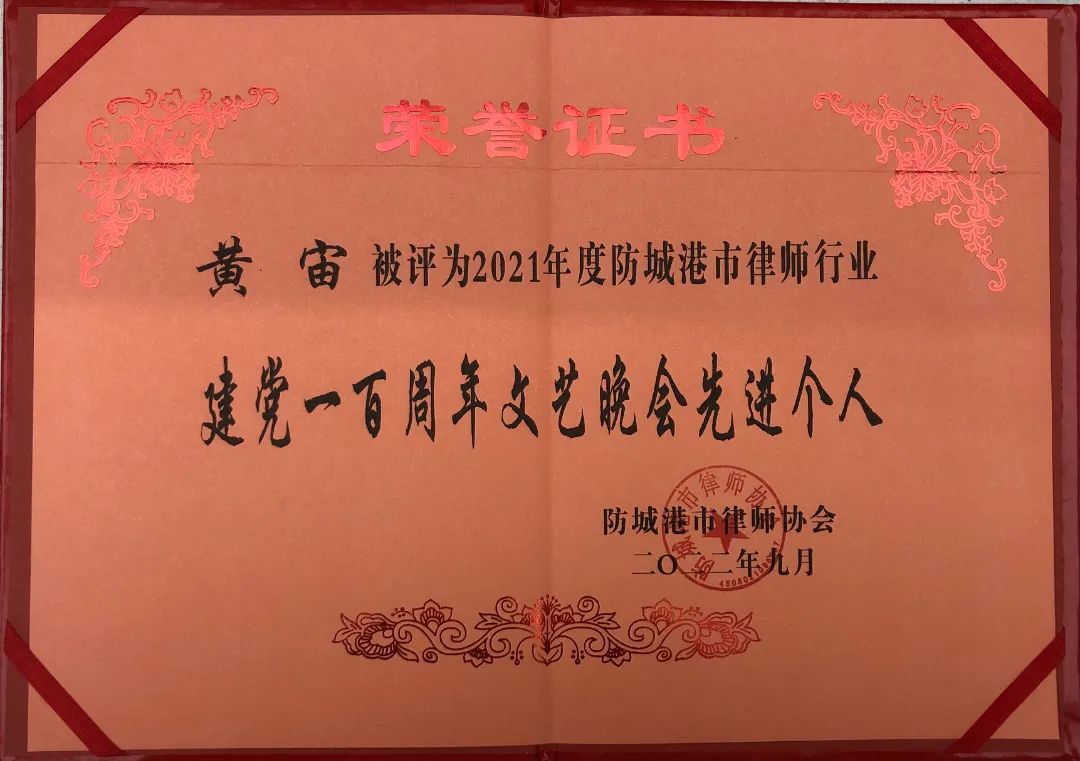 荣誉证书
黄宙 被评为2021年度防城港市律师行业
建党一百周年文艺晚会先进个人
防城港市律师协会
二〇二二年九月
防城港市律师协会